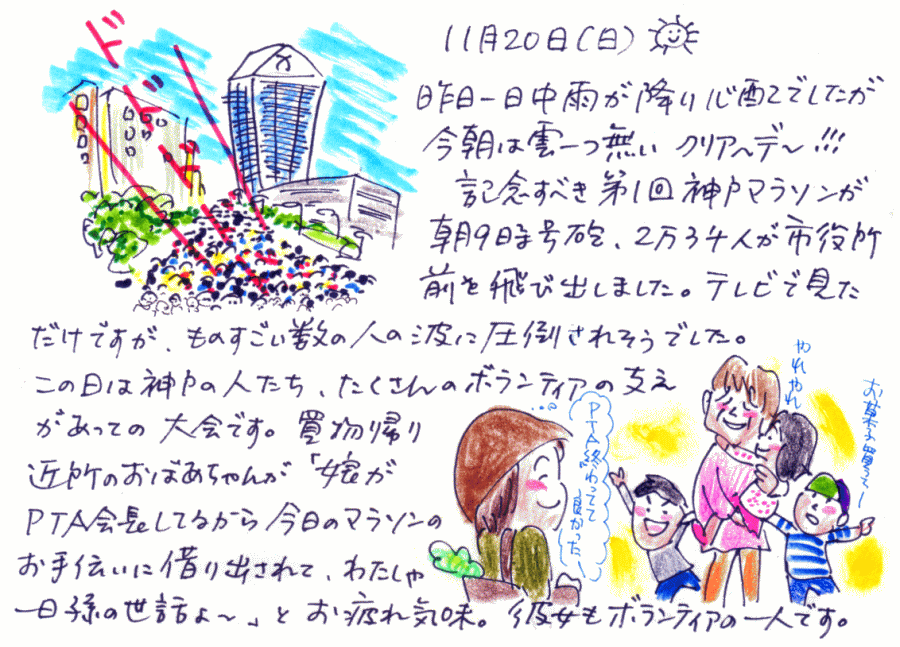 ドドドド
11月20日(日)
昨日一日中雨が降り心配でしたが
今朝は雲一つ無い クリア〜デ〜!!!
記念すべき第1回神戸マラソンが
朝9時号砲、2万3千人が市役所
前を飛び出しました。テレビで見た
だけですが、ものすごい数の人の波に圧倒されそうでした。
この日は神戸の人たち、たくさんのボランティアの支え
があっての大会です。買物帰り
近所のおばあちゃんが「嫁が
PTA会長してるから今日のマラソンの
お手伝いに借り出されて、わたしゃ
一日孫の世話よ〜」とお疲れ気味。彼女もボランティアの一人です。
PTA終わってて
良かった〜
やれやれ
お菓子買って〜